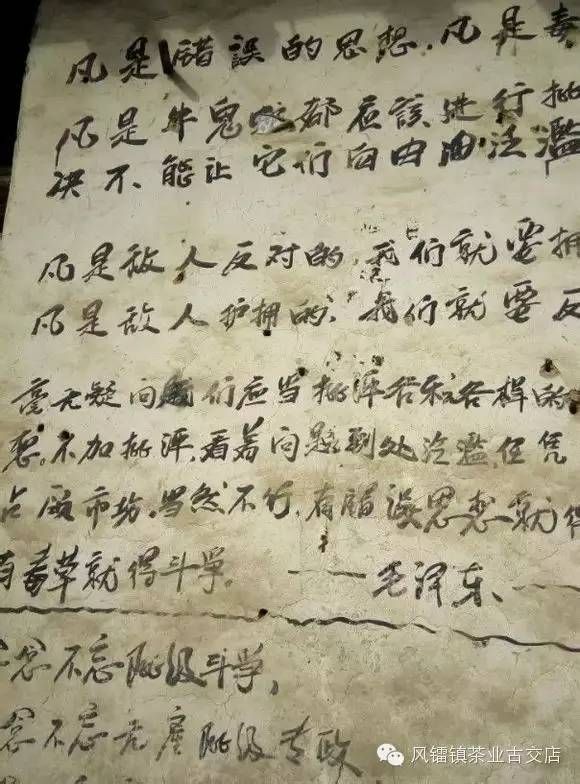 凡是错誤的思想.凡是毒
凡是牛鬼蛇都应該进行批
决不能让它们自由油泛濫
凡是敌人反对的,我们就要拥
凡是敌人护拥的,我们就要反
毫无疑问我们应当批评各种各样的
想。不加批评,看着问题到处泛濫,任凭
占领市场,当然不行,有错误思想就得
有毒草就得斗争。
——毛泽东
念不忘阶级斗争,
念不忘无产阶级专政
风镭镇茶业古交店